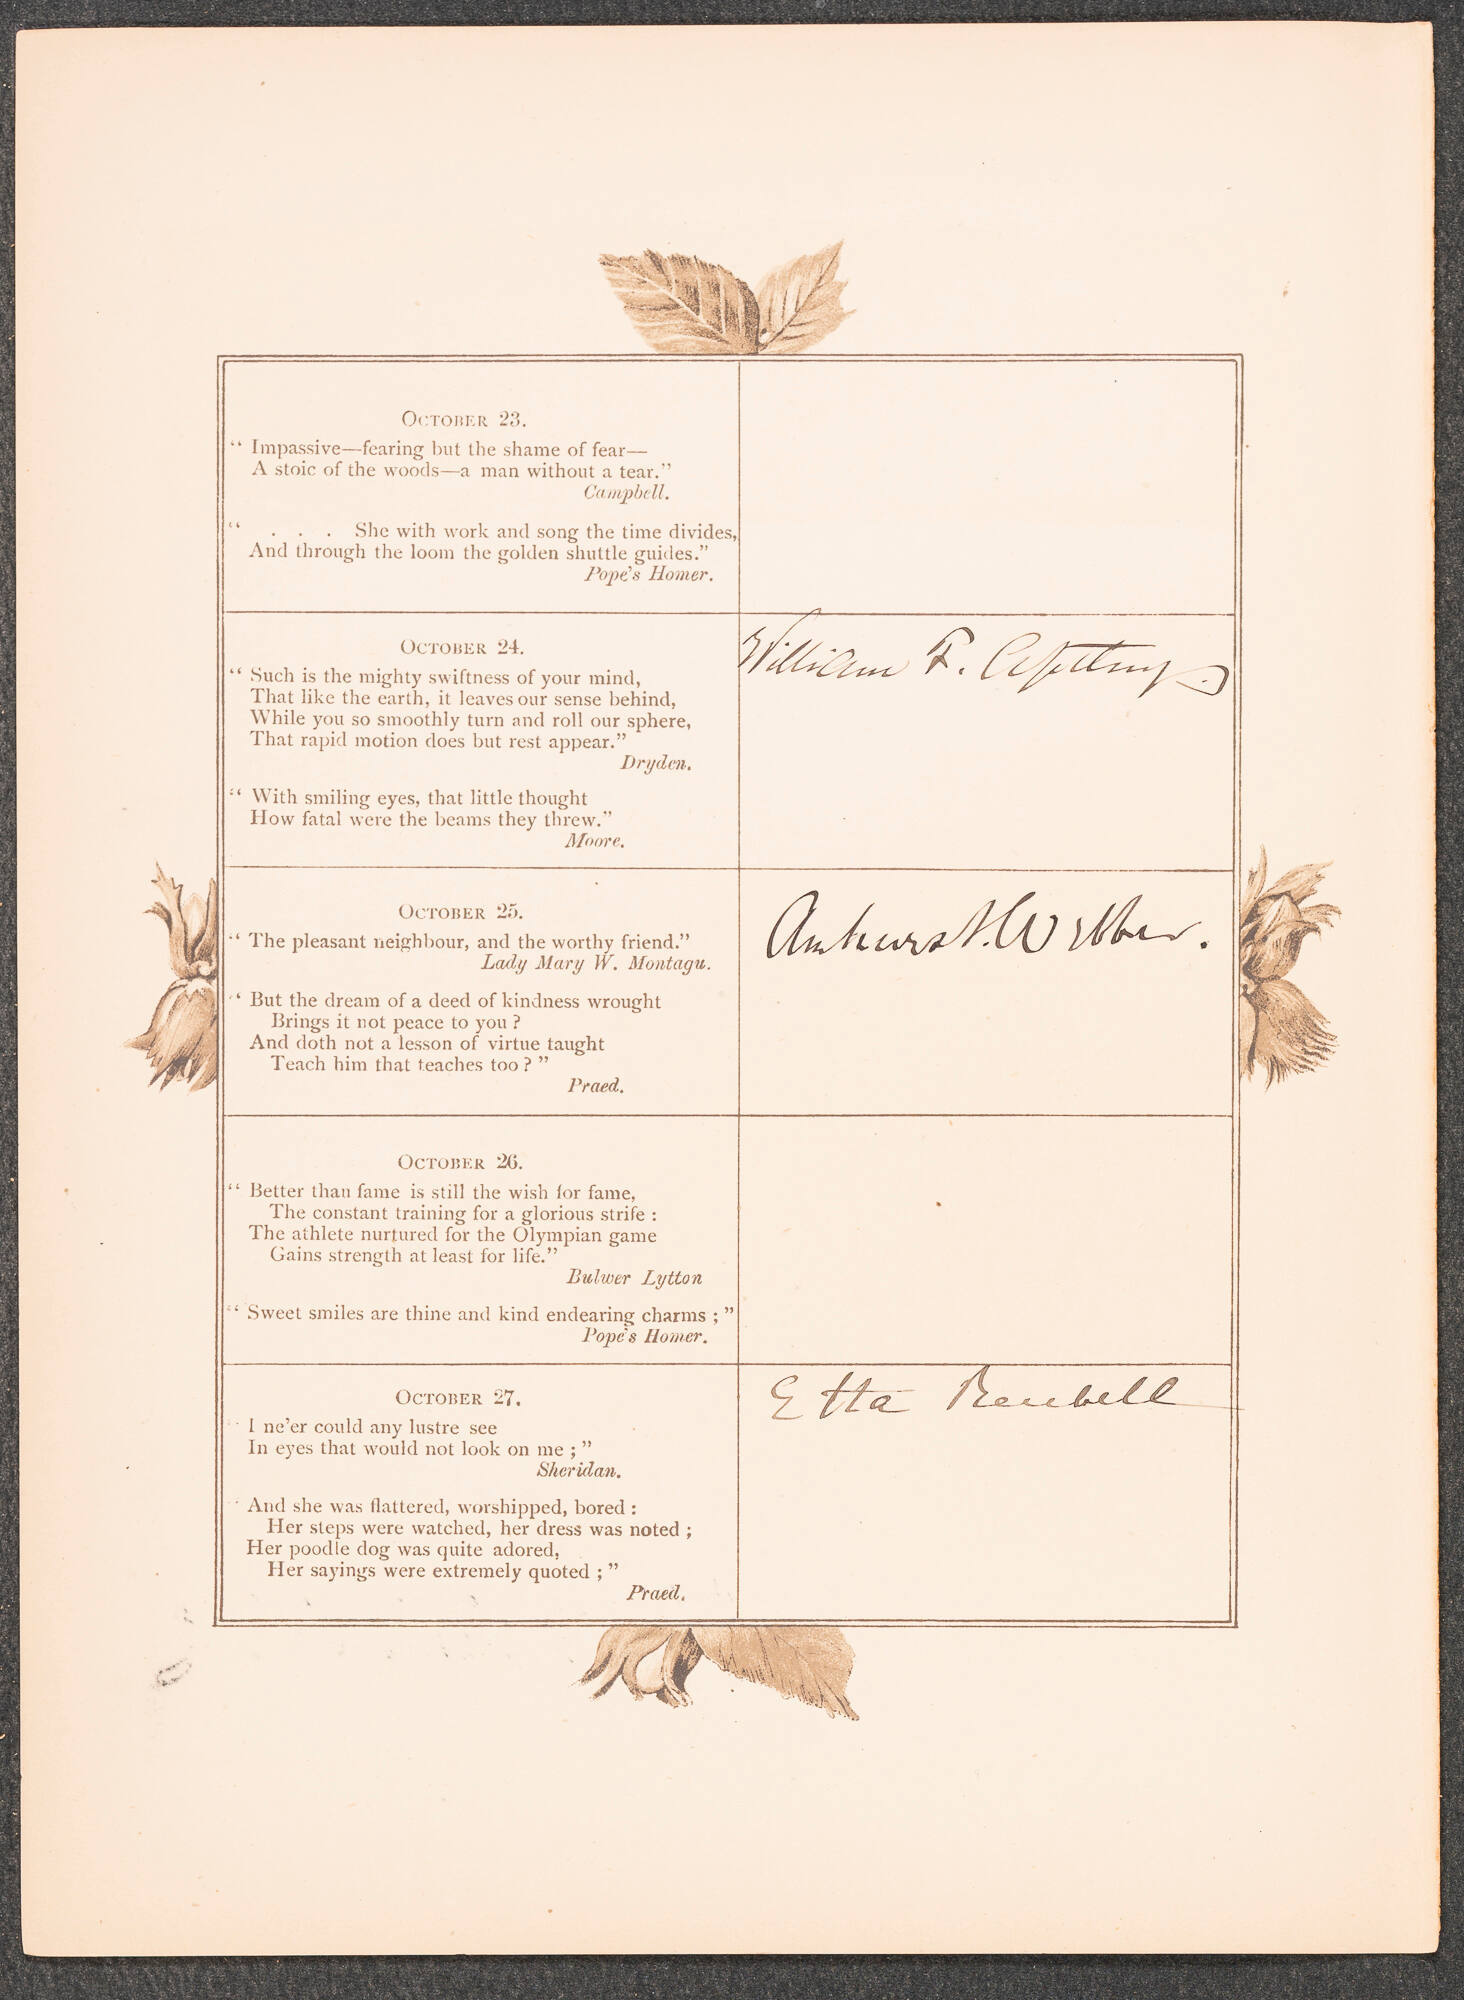 OCTOBER 23.
“ Impassive—fearing but the shame of fear—
A stoic of the woods—a man without a tear.”
Campbell.
“ . . . She with work and song the time divides,
And through the loom the golden shuttle guides.”
Pope's Homer.
OCTOBER 24.
William F.
“ Such is the mighty swiftness of your mind,
That like the earth, it leaves our sense behind,
While you so smoothly turn and roll our sphere,
That rapid motion does but rest appear.”
Dryden.
“ With smiling eyes, that little thought
How fatal were the beams they threw.”
Moore.
OCTOBER 25.
Amherst Webber.
“ The pleasant neighbour, and the worthy friend.”
Lady Mary W. Montagu.
“ But the dream of a deed of kindness wrought
Brings it not peace to you ?
And doth not a lesson of virtue taught
Teach him that teaches too ? ”
Praed.
OCTOBER 26.
“ Better than fame is still the wish for fame,
The constant training for a glorious strife :
The athlete nurtured for the Olympian game
Gains strength at least for life.”
Bulwer Lytton
“ Sweet smiles are thine and kind endearing charms ; ”
Pope's Homer.
OCTOBER 27.
Etta Reubell
“ I ne'er could any lustre see
In eyes that would not look on me ; ”
Sheridan.
“ And she was flattered, worshipped, bored :
Her steps were watched, her dress was noted ;
Her poodle dog was quite adored,
Her sayings were extremely quoted ; ”
Praed.